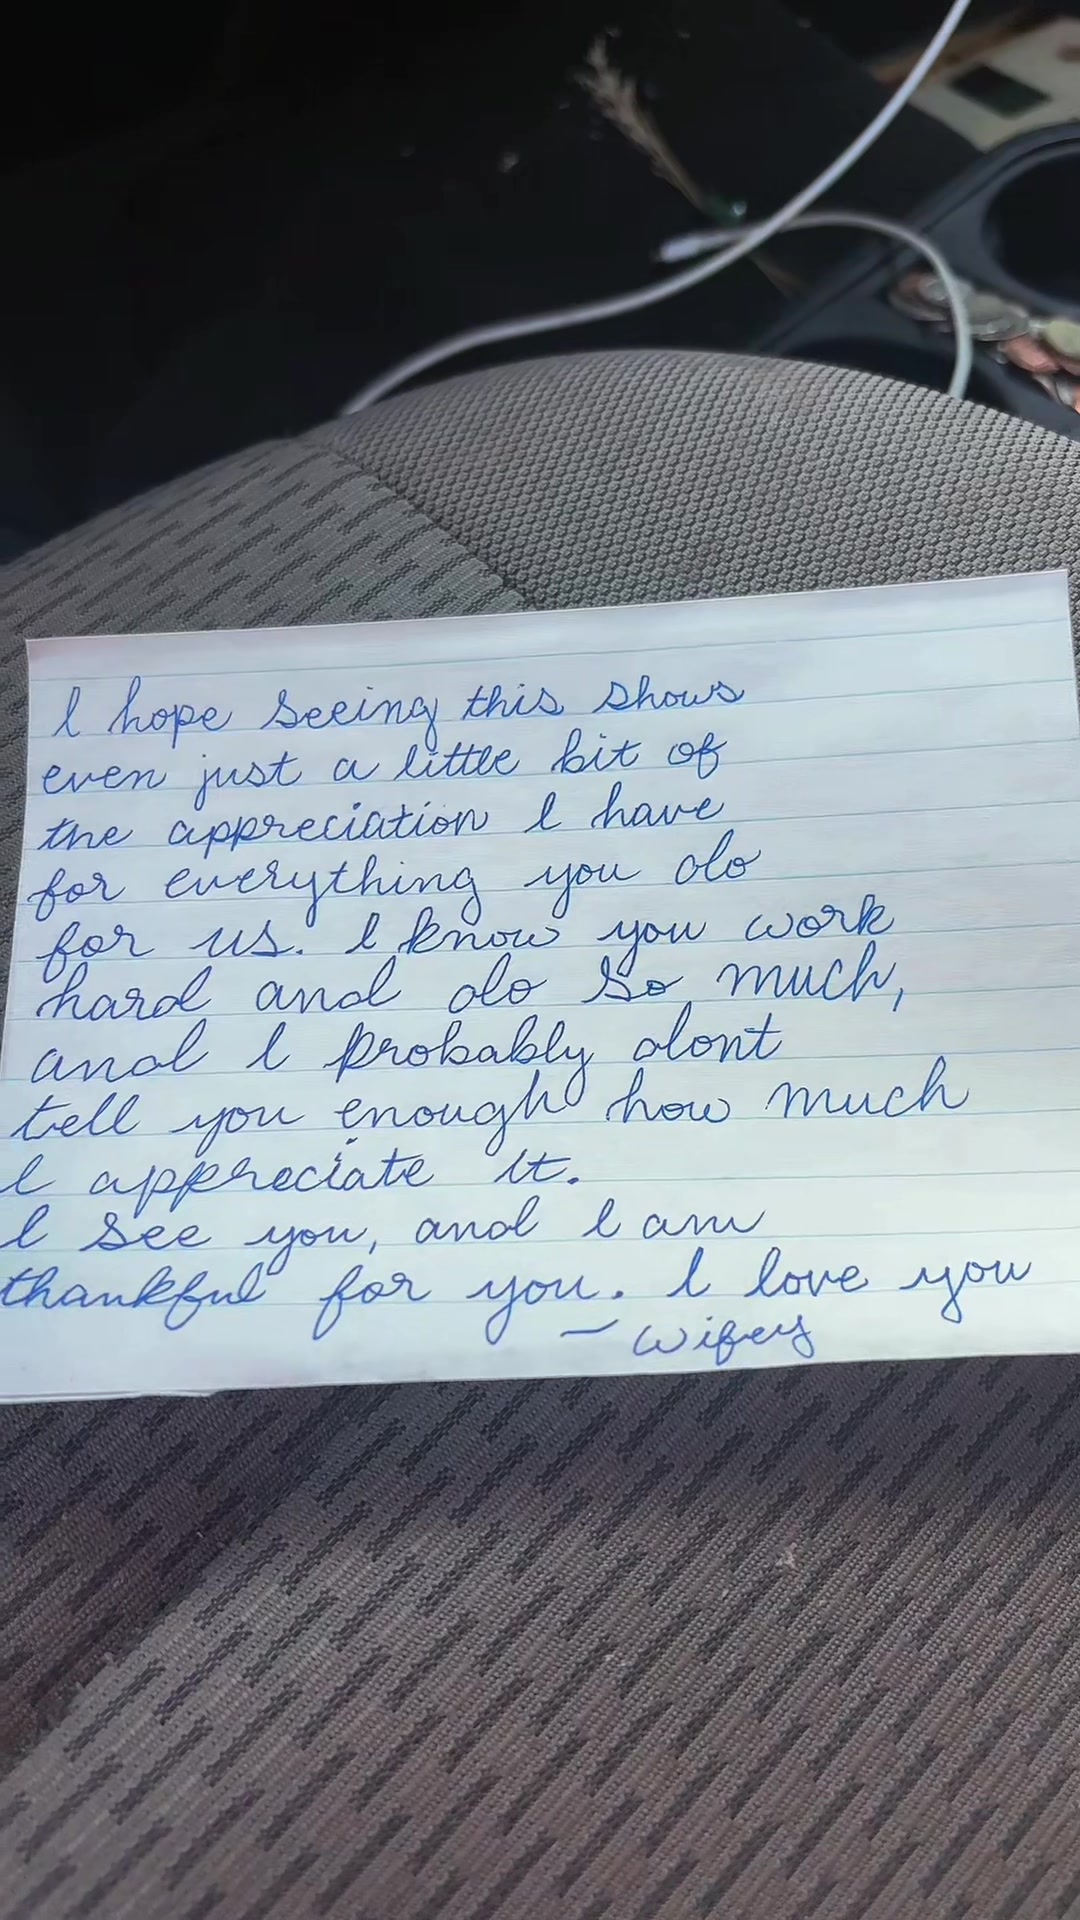 I hope seeing this shows
even just a little bit of
the appreciation I have
for everything you do
for us. I know you work
hard and do so much,
and I probably dont
tell you enough how much
I appreciate it.
I see you, and I am
thankful for you. I love you
- wifey